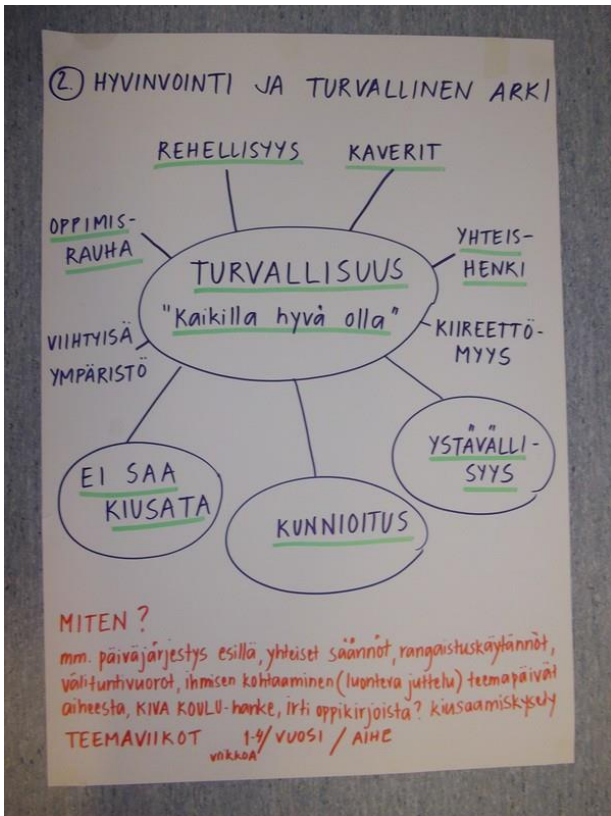 2. HYVINVOINTI JA TURVALLINEN ARKI
REHELLISYYS
KAVERIT
OPPIMIS-
RAUHA
YHTEIS-
HENKI
TURVALLISUUS
"Kaikilla hyvä olla"
VIIHTYISÄ
YMPÄRISTÖ
KIIREETTÖ-
MYYS
EI SAA
KIUSATA
KUNNIOITUS
YSTÄVÄLLI-
SYYS
MITEN?
mm. päiväjärjestys esillä, yhteiset säännöt, rangaistuskäytännöt,
välituntivuorot, ihmisen kohtaaminen (luonteva juttelu) teemapäivät
aiheesta, KIVA KOULU-hanke, irti oppikirjoista? kiusaamiskysely
TEEMAVIIKOT 1-4/VUOSI / AIHE
viikkoa